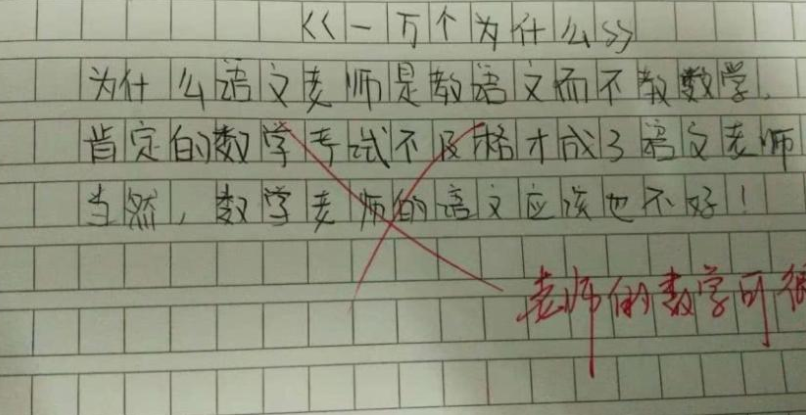 《一万个为什么》
为什么语文老师是教语文而不教数学,
肯定的数学考试不及格才成了语文老师
当然,数学老师的语文应该也不好!
老师的数学可很